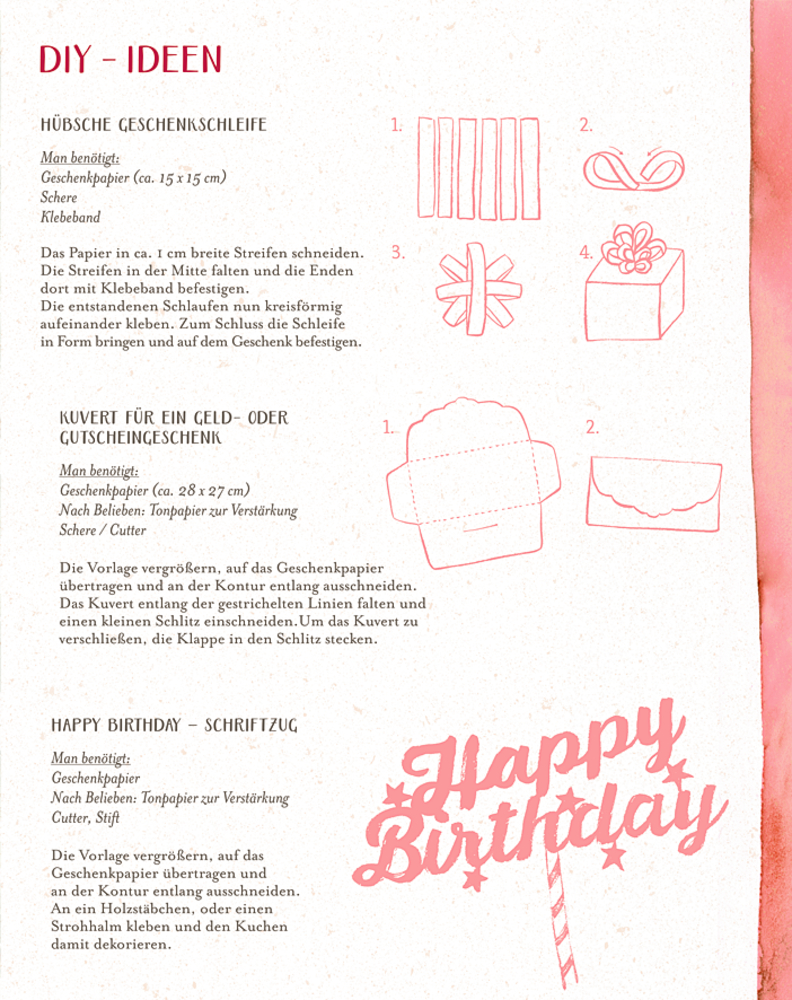 DIY – IDEEN
HÜBSCHE GESCHENKSCHLEIFE
Man benötigt:
Geschenkpapier (ca. 15 x 15 cm)
Schere
Klebeband
Das Papier in ca. 1 cm breite Streifen schneiden.
Die Streifen in der Mitte falten und die Enden
dort mit Klebeband befestigen.
Die entstandenen Schlaufen nun kreisförmig
aufeinander kleben. Zum Schluss die Schleife
in Form bringen und auf dem Geschenk befestigen.
1.
2.
3.
4.
KUVERT FÜR EIN GELD- ODER
GUTSCHEINGESCHENK
Man benötigt:
Geschenkpapier (ca. 28 x 27 cm)
Nach Belieben: Tonpapier zur Verstärkung
Schere / Cutter
Die Vorlage vergrößern, auf das Geschenkpapier
übertragen und an der Kontur entlang ausschneiden.
Das Kuvert entlang der gestrichelten Linien falten und
einen kleinen Schlitz einschneiden.Um das Kuvert zu
verschließen, die Klappe in den Schlitz stecken.
1.
2.
HAPPY BIRTHDAY – SCHRIFTZUG
Man benötigt:
Geschenkpapier
Nach Belieben: Tonpapier zur Verstärkung
Cutter, Stift
Die Vorlage vergrößern, auf das
Geschenkpapier übertragen und
an der Kontur entlang ausschneiden.
An ein Holzstäbchen, oder einen
Strohhalm kleben und den Kuchen
damit dekorieren.
Happy
Birthday